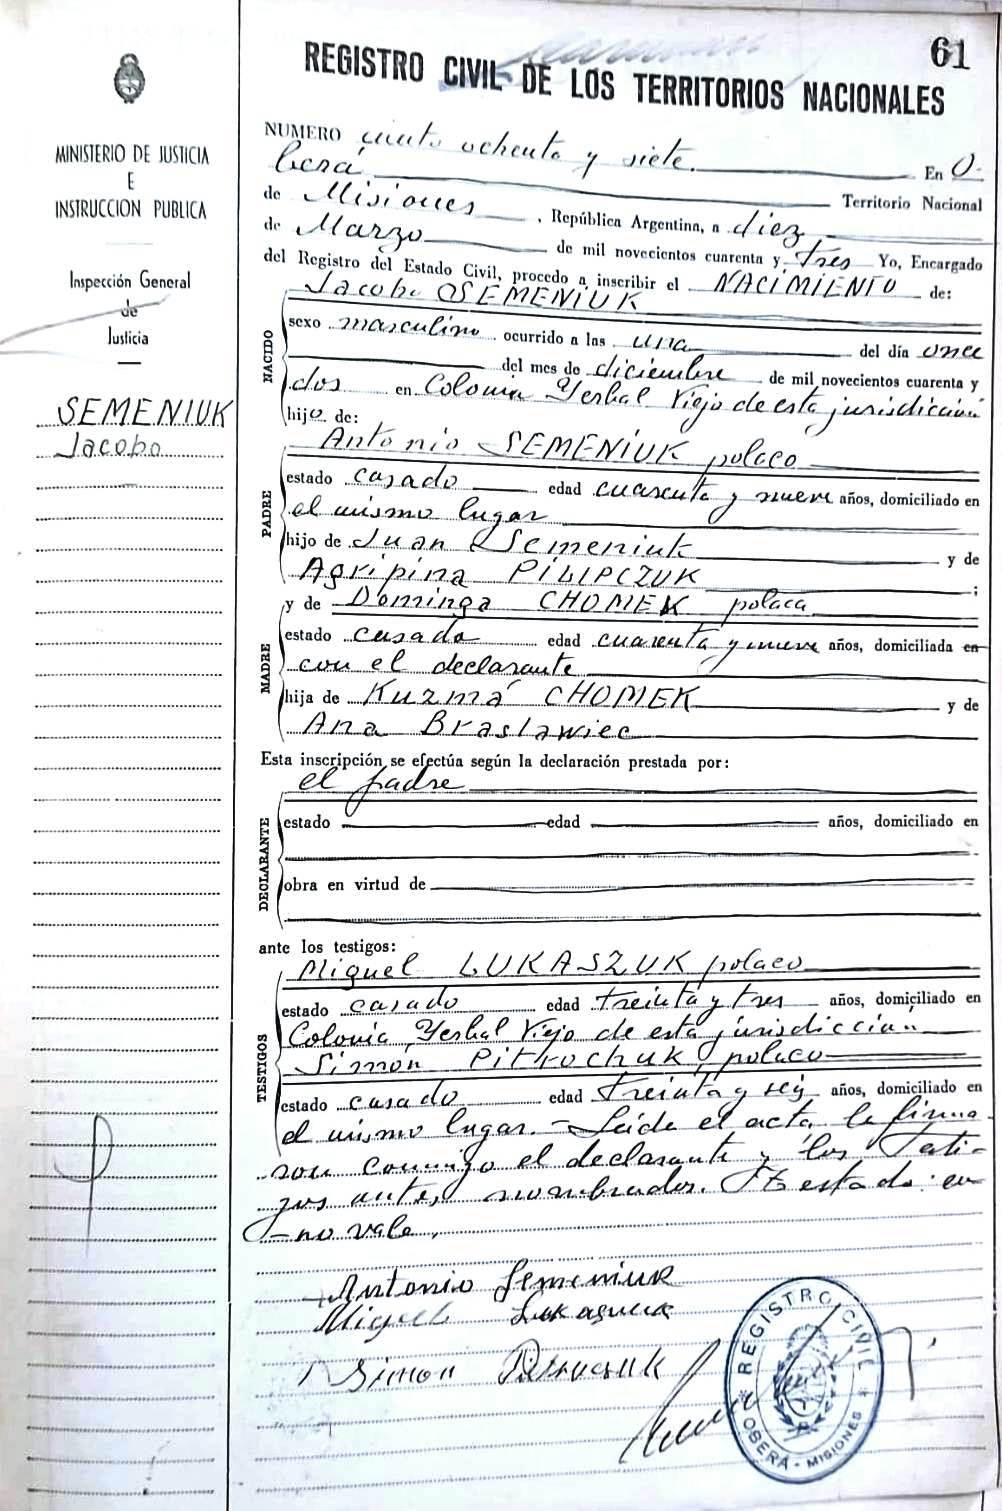 61
REGISTRO CIVIL DE LOS TERRITORIOS NACIONALES
MINISTERIO DE JUSTICIA
E
INSTRUCCION PUBLICA
Inspección General
de
Justicia
SEMENIUK
Jacobo
NUMERO ciento ochenta y siete. En O-
berá Territorio Nacional
de Misiones, República Argentina, a diez
de Marzo de mil novecientos cuarenta y tres Yo, Encargado
del Registro del Estado Civil, procedo a inscribir el NACIMIENTO de:
Jacobo SEMENIUK
NACIDO
sexo masculino ocurrido a las una del día once
del mes de diciembre de mil novecientos cuarenta y
dos en Colonia Yerbal Viejo de esta jurisdicción
hijo de:
Antonio SEMENIUK polaco
PADRE
estado casado edad cuarenta y nueve años, domiciliado en
el mismo lugar
hijo de Juan Semeniuk y de
Agripina PILIPCZUK ;
y de Dominga CHOMEK polaca
MADRE
estado casada edad cuarenta y nueve años, domiciliada en
con el declarante
hija de Kuzmá CHOMEK y de
Ana Braslawiec
Esta inscripción se efectúa según la declaración prestada por:
el padre
DECLARANTE
estado edad años, domiciliado en
obra en virtud de
ante los testigos:
Miguel LUKASZUK polaco
TESTIGOS
estado casado edad treinta y tres años, domiciliado en
Colonia Yerbal Viejo de esta jurisdicción
Simón PITROCHUK, polaco
estado casado edad treinta y seis años, domiciliado en
el mismo lugar.- Leída el acta, la firma-
ron conmigo el declarante y los testi-
gos antes nombrados. Testado: en
-no vale.
Antonio Semeniuk
Miguel
Simon
REGISTRO CIVIL
OBERA - MISIONES